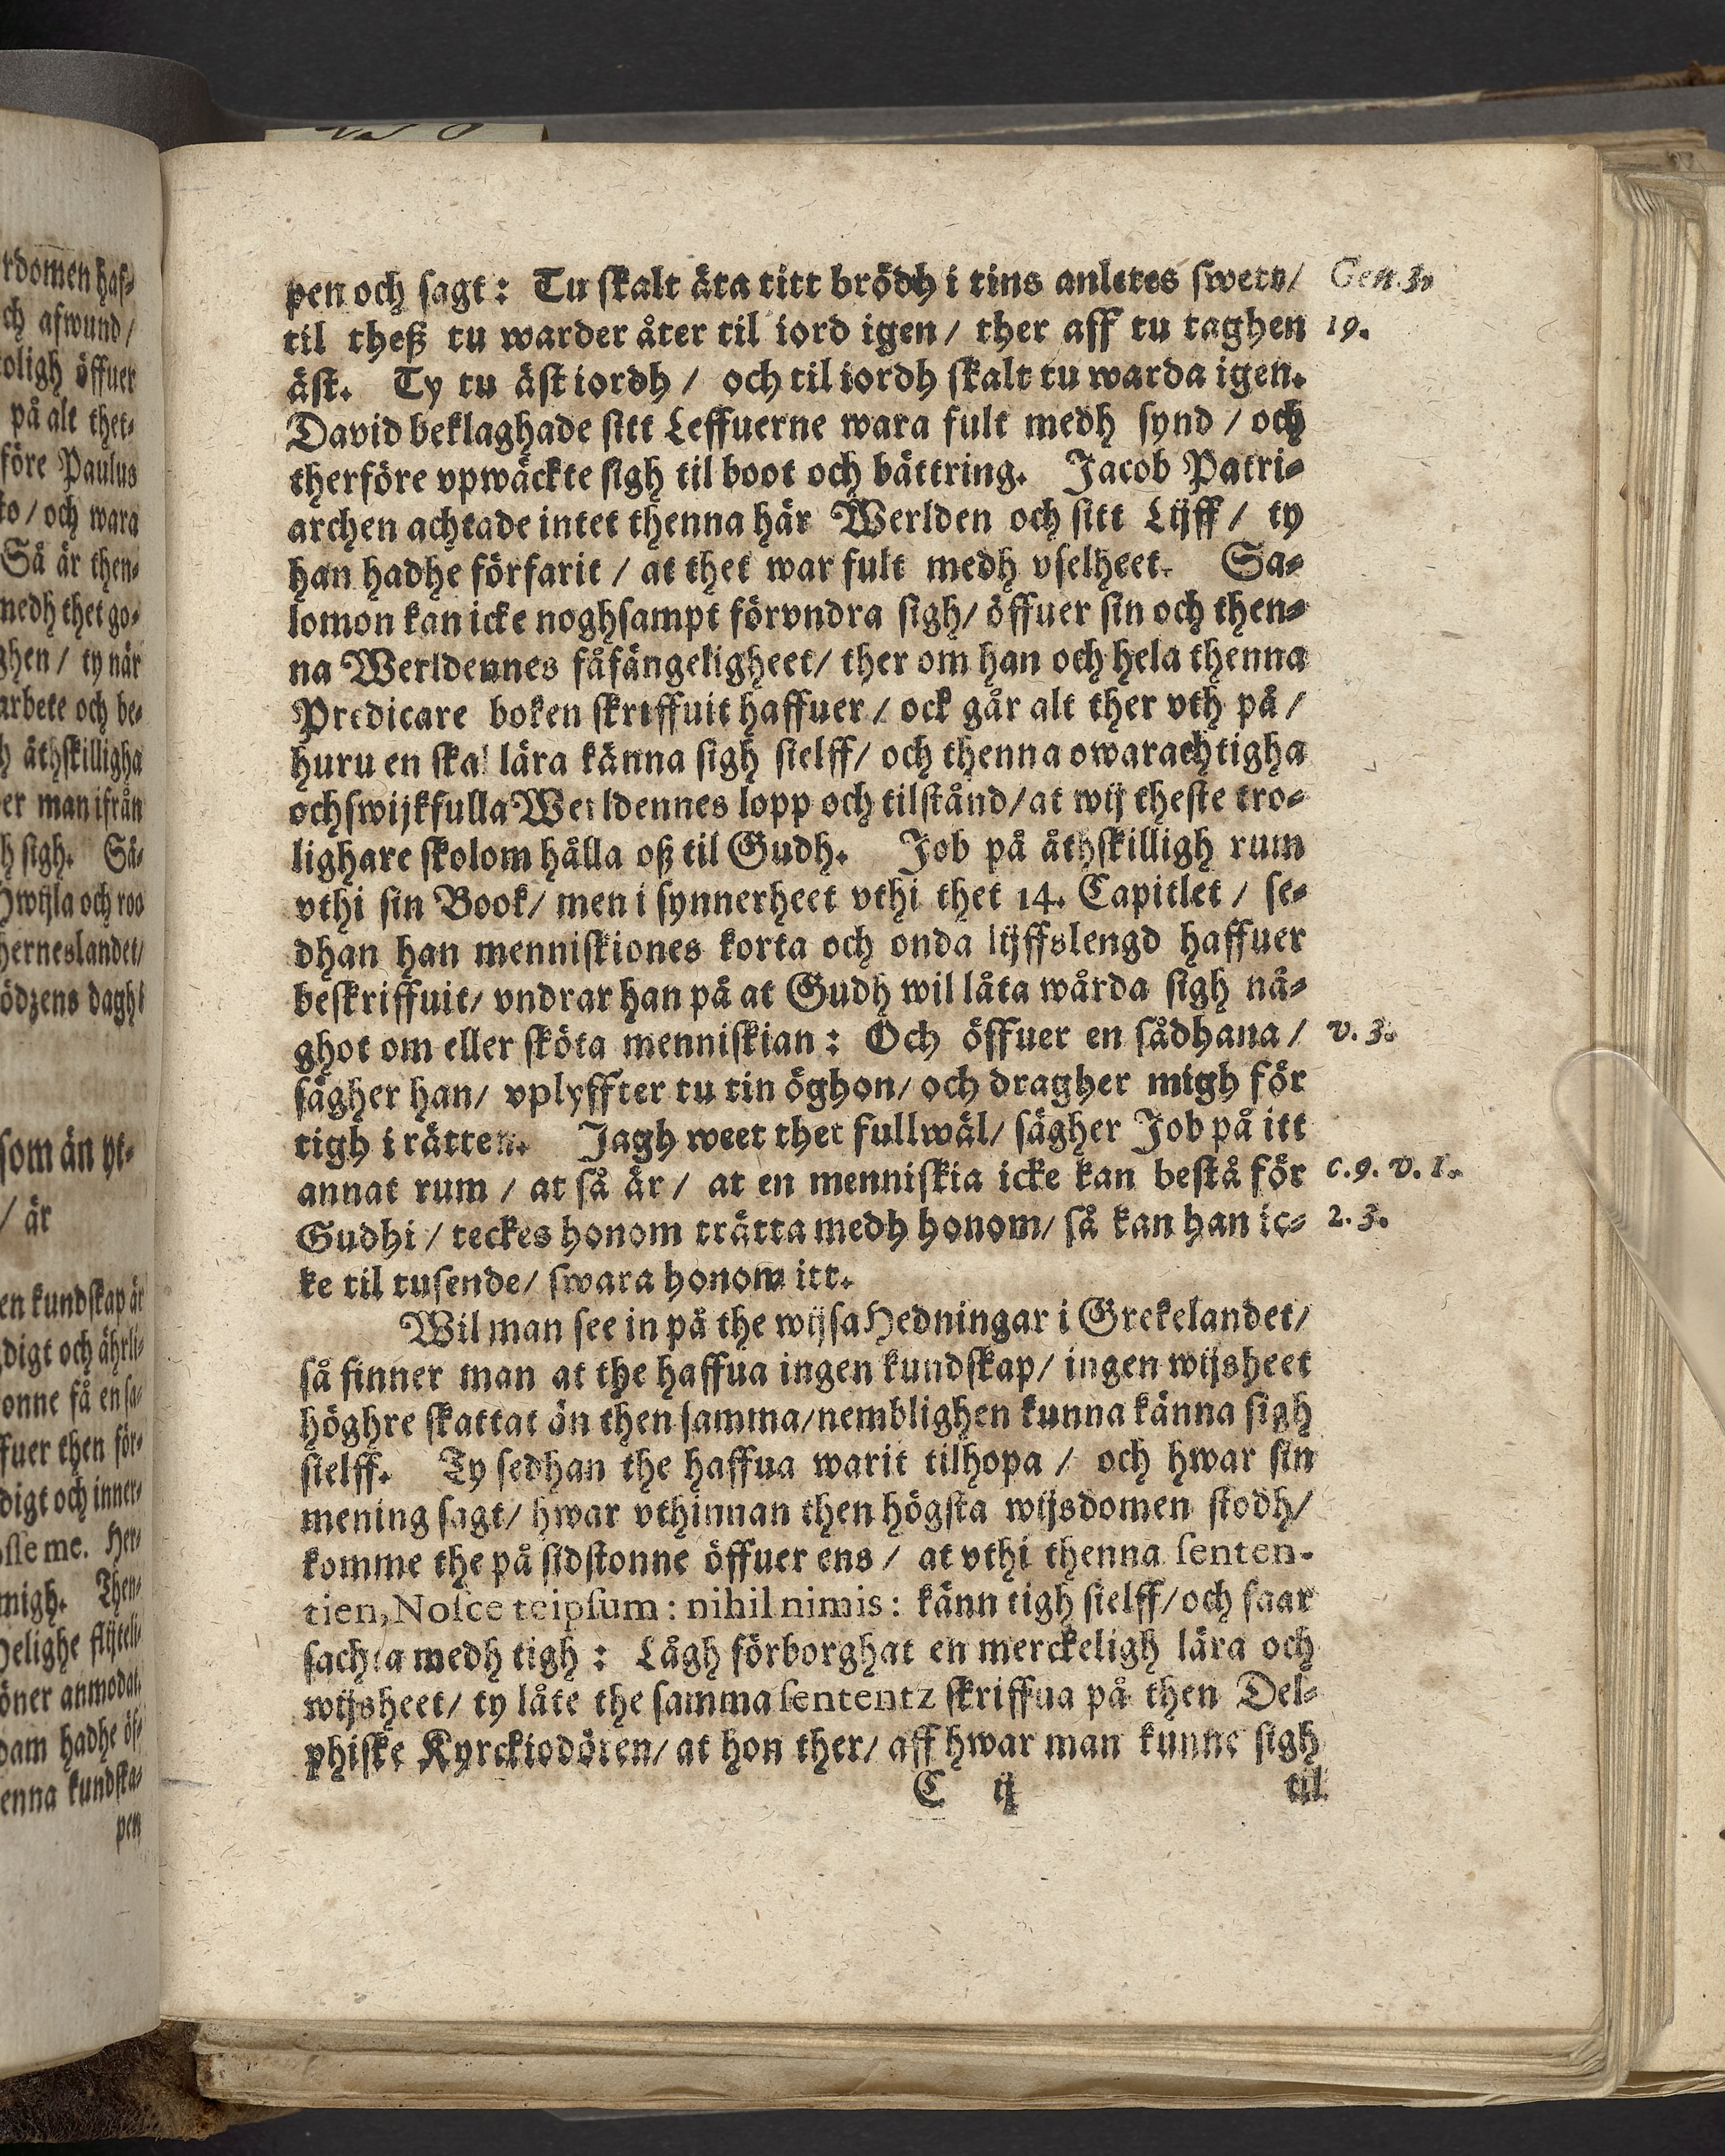 rdomen haf-
ch afwund/
toligh öffuer
på alt thet-
före Paulus
to/ och wara
Så är then-
medh thet go-
ghen/ ty när
arbete och be-
h äthskilligha
er man ifrån
h sigh. Så-
Hwijla och roo
herneslandet/
ödzens daghi
som än yt-
/ är
en kundskap är
digt och ährli-
onne få en sa-
ffuer then för-
digt och inner-
osse me. Her-
migh. Then-
helighe flijteli-
öner anmodat.
dam hadhe öf-
enna kundska-
pen
pen och sagt: Tu skalt äta titt brödh i tins anletes swett/ Gen. 3.
til theß tu warder åter til iord igen/ ther aff tu taghen 19.
äst. Ty tu äst iordh/ och til iordh skalt tu warda igen.
David beklaghade sitt Leffuerne wara fult medh synd/ och
therföre vpwäckte sigh til boot och bättring. Jacob Patri-
archen achtade intet thenna här Werlden och sitt Lijff/ ty
han hadhe förfarit/ at thet war fult medh vselheet. Sa-
lomon kan icke noghsampt förvndra sigh/ öffuer sin och then-
na Werldennes fåfängeligheet/ ther om han och hela thenna
Predicare boken skriffuit haffuer/ ock går alt ther vth på/
huru en skal lära känna sigh sielff/ och thenna owarachtigha
och swijkfulla Werldennes lopp och tilstånd/ at wij theste tro-
lighare skolom hålla oß til Gudh. Job på åthskilligh rum
vthi sin Book/ men i synnerheet vthi thet 14. Capitlet/ se-
dhan han menniskiones korta och onda lijffslengd haffuer
beskriffuit/ vndrar han på at Gudh wil låta wårda sigh nå-
ghot om eller sköta menniskian: Och öffuer en sådhana/ v. 3.
sägher han/ vplyffter tu tin öghon/ och dragher migh för
tigh i rätten. Jagh weet thet fullwäl/ sägher Job på itt
annat rum/ at så är/ at en menniskia icke kan bestå för c. 9. v. 1.
Gudhi/ teckes honom trätta medh honom/ så kan han ic- 2. 3.
ke til tusende/ swara honom itt.
Wil man see in på the wijsa Hedningar i Grekelandet/
så finner man at the haffua ingen kundskap/ ingen wijsheet
höghre skattat än then samma/ nemblighen kunna känna sigh
sielff. Ty sedhan the haffua warit tilhopa/ och hwar sin
mening sagt/ hwar vthinnan then högsta wijsdomen stodh/
komme the på sidstonne öffuer ens/ at vthi thenna senten-
tien, Nosce teipsum: nihil nimis: känn tigh sielff/ och faar
sachta medh tigh: Lågh förborghat en merckeligh lära och
wijsheet/ ty låte the samma sententz skriffua på then Del-
phiske Kyrckiodören/ at hon ther/ aff hwar man kunne sigh
C ij til